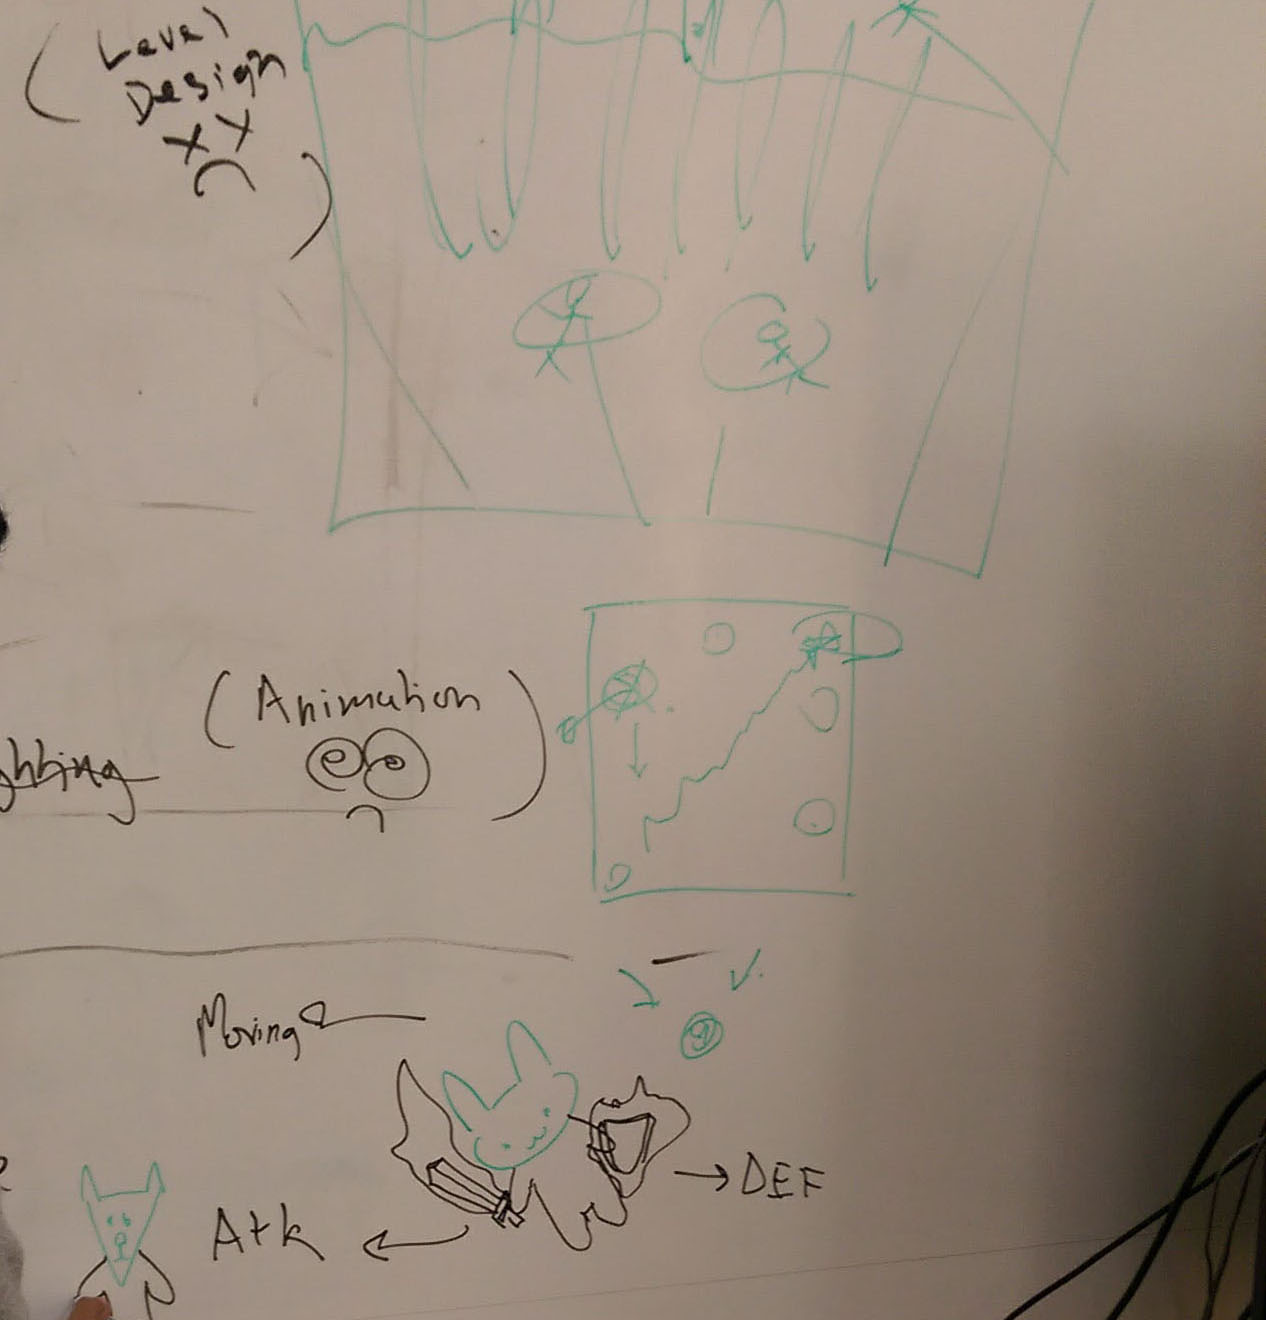 (Level
Design
)
(Animation)
Moving
DEF
Atk